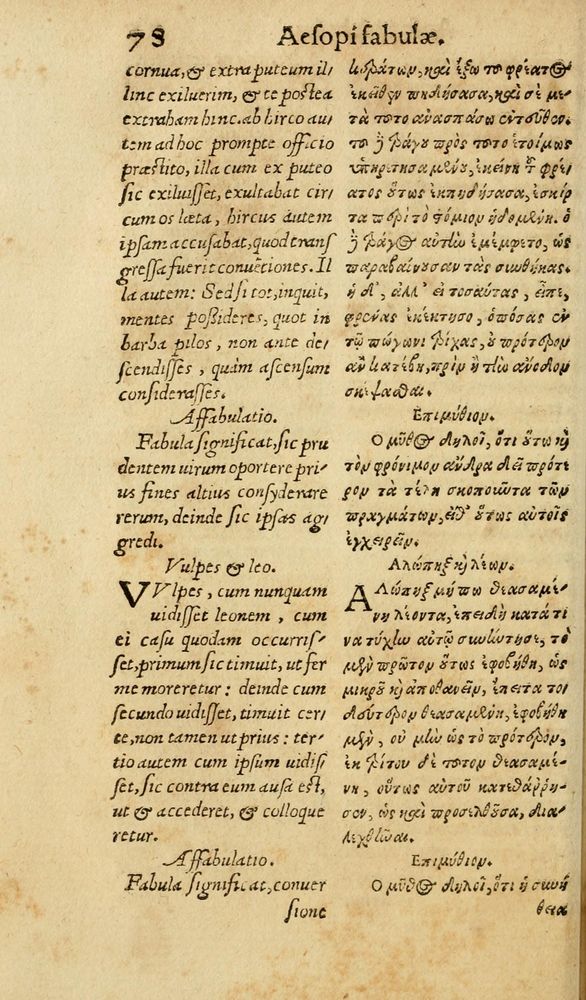 78 Aesopi fabulæ.
cornua, & extra puteum il/
linc exiluerim, & te postea
extraham hinc. ab hirco au/
tem ad hoc prompte officio
præstito, illa cum ex puteo
sic exiluisset, exultabat cir/
cum os læta, hircus autem
ipsam accusabat, quod trans
gressa fuerit conuẽtiones. Il
la autem: Sed si tot, inquit,
mentes possideres, quot in
barba pilos, non ante de/
scendisses, quàm ascensum
considerasses.
Affabulatio.
Fabula significat, sic pru
dentem uirum oportere pri/
us fines altius consyderare
rerum, deinde sic ipsas ag
gredi.
Vulpes & leo.
VVlpes, cum nunquam
uidisset leonem, cum
ei casu quodam occurris/
set, primum sic timuit, ut fer
me moreretur: deinde cum
secundo uidisset, timuit cer/
te, non tamen ut prius: ter/
tio autem cum ipsum uidis/
set, sic contra eum ausa est,
ut & accederet, & colloque
retur.
Affabulatio.
Fabula significat, conuer
sione
κεράτων, καὶ ἔξω τοῦ φρέατος
ἐκεῖθεν πηδήσασα, καὶ σὲ με/
τὰ τοῦτο ἀνασπάσω ἐντεῦθεν.
τοῦ δὲ τράγου πρὸς τοῦτο ἑτοίμως
ὑπηρετησαμένου, ἐκείνη τοῦ φρέ
ατος οὕτως ἐκπηδήσασα, ἐσκίρ
τα περὶ τὸ στόμιον ἡδομένη. ὁ
δὲ τράγος αὐτὴν ἐμέμφετο, ὡς
παραβαίνουσαν τὰς συνθήκας.
ἡ δ', ἀλλ' εἰ τοσαύτας, εἶπε,
φρένας ἐκέκτησο, ὁπόσας ἐν
τῷ πώγωνι τρίχας, οὐ πρότερον
ἂν κατέβης, πρὶν ἢ τὴν ἄνοδον
σκέψασθαι.
Ἐπιμύθιον.
Ὁ μῦθος δηλοῖ, ὅτι οὕτω καὶ
τὸν φρόνιμον ἄνδρα δεῖ πρότε
ρον τὰ τέλη σκοποῦντα τῶν
πραγμάτων, εἶθ' οὕτως αὐτοῖς
ἐγχειρεῖν.
Ἀλώπηξ καὶ λέων.
Ἀλώπηξ μήπω θεασαμέ/
νη λέοντα, ἐπειδὴ κατά τι
να τύχην αὐτῷ συνήντησε, τὸ
μὲν πρῶτον οὕτως ἐφοβήθη, ὡς
μικροῦ καὶ ἀποθανεῖν, ἔπειτα τὸ
δεύτερον θεασαμένη, ἐφοβήθη
μὲν, οὐ μὴν ὡς τὸ πρότερον,
ἐκ τρίτου δὲ τοῦτον θεασαμέ/
νη, οὕτως αὐτοῦ κατεθάρρη/
σεν, ὡς καὶ προσελθοῦσα, δια/
λεχθῆναι.
Ἐπιμύθιον.
Ὁ μῦθος δηλοῖ, ὅτι ἡ συνή
θεια